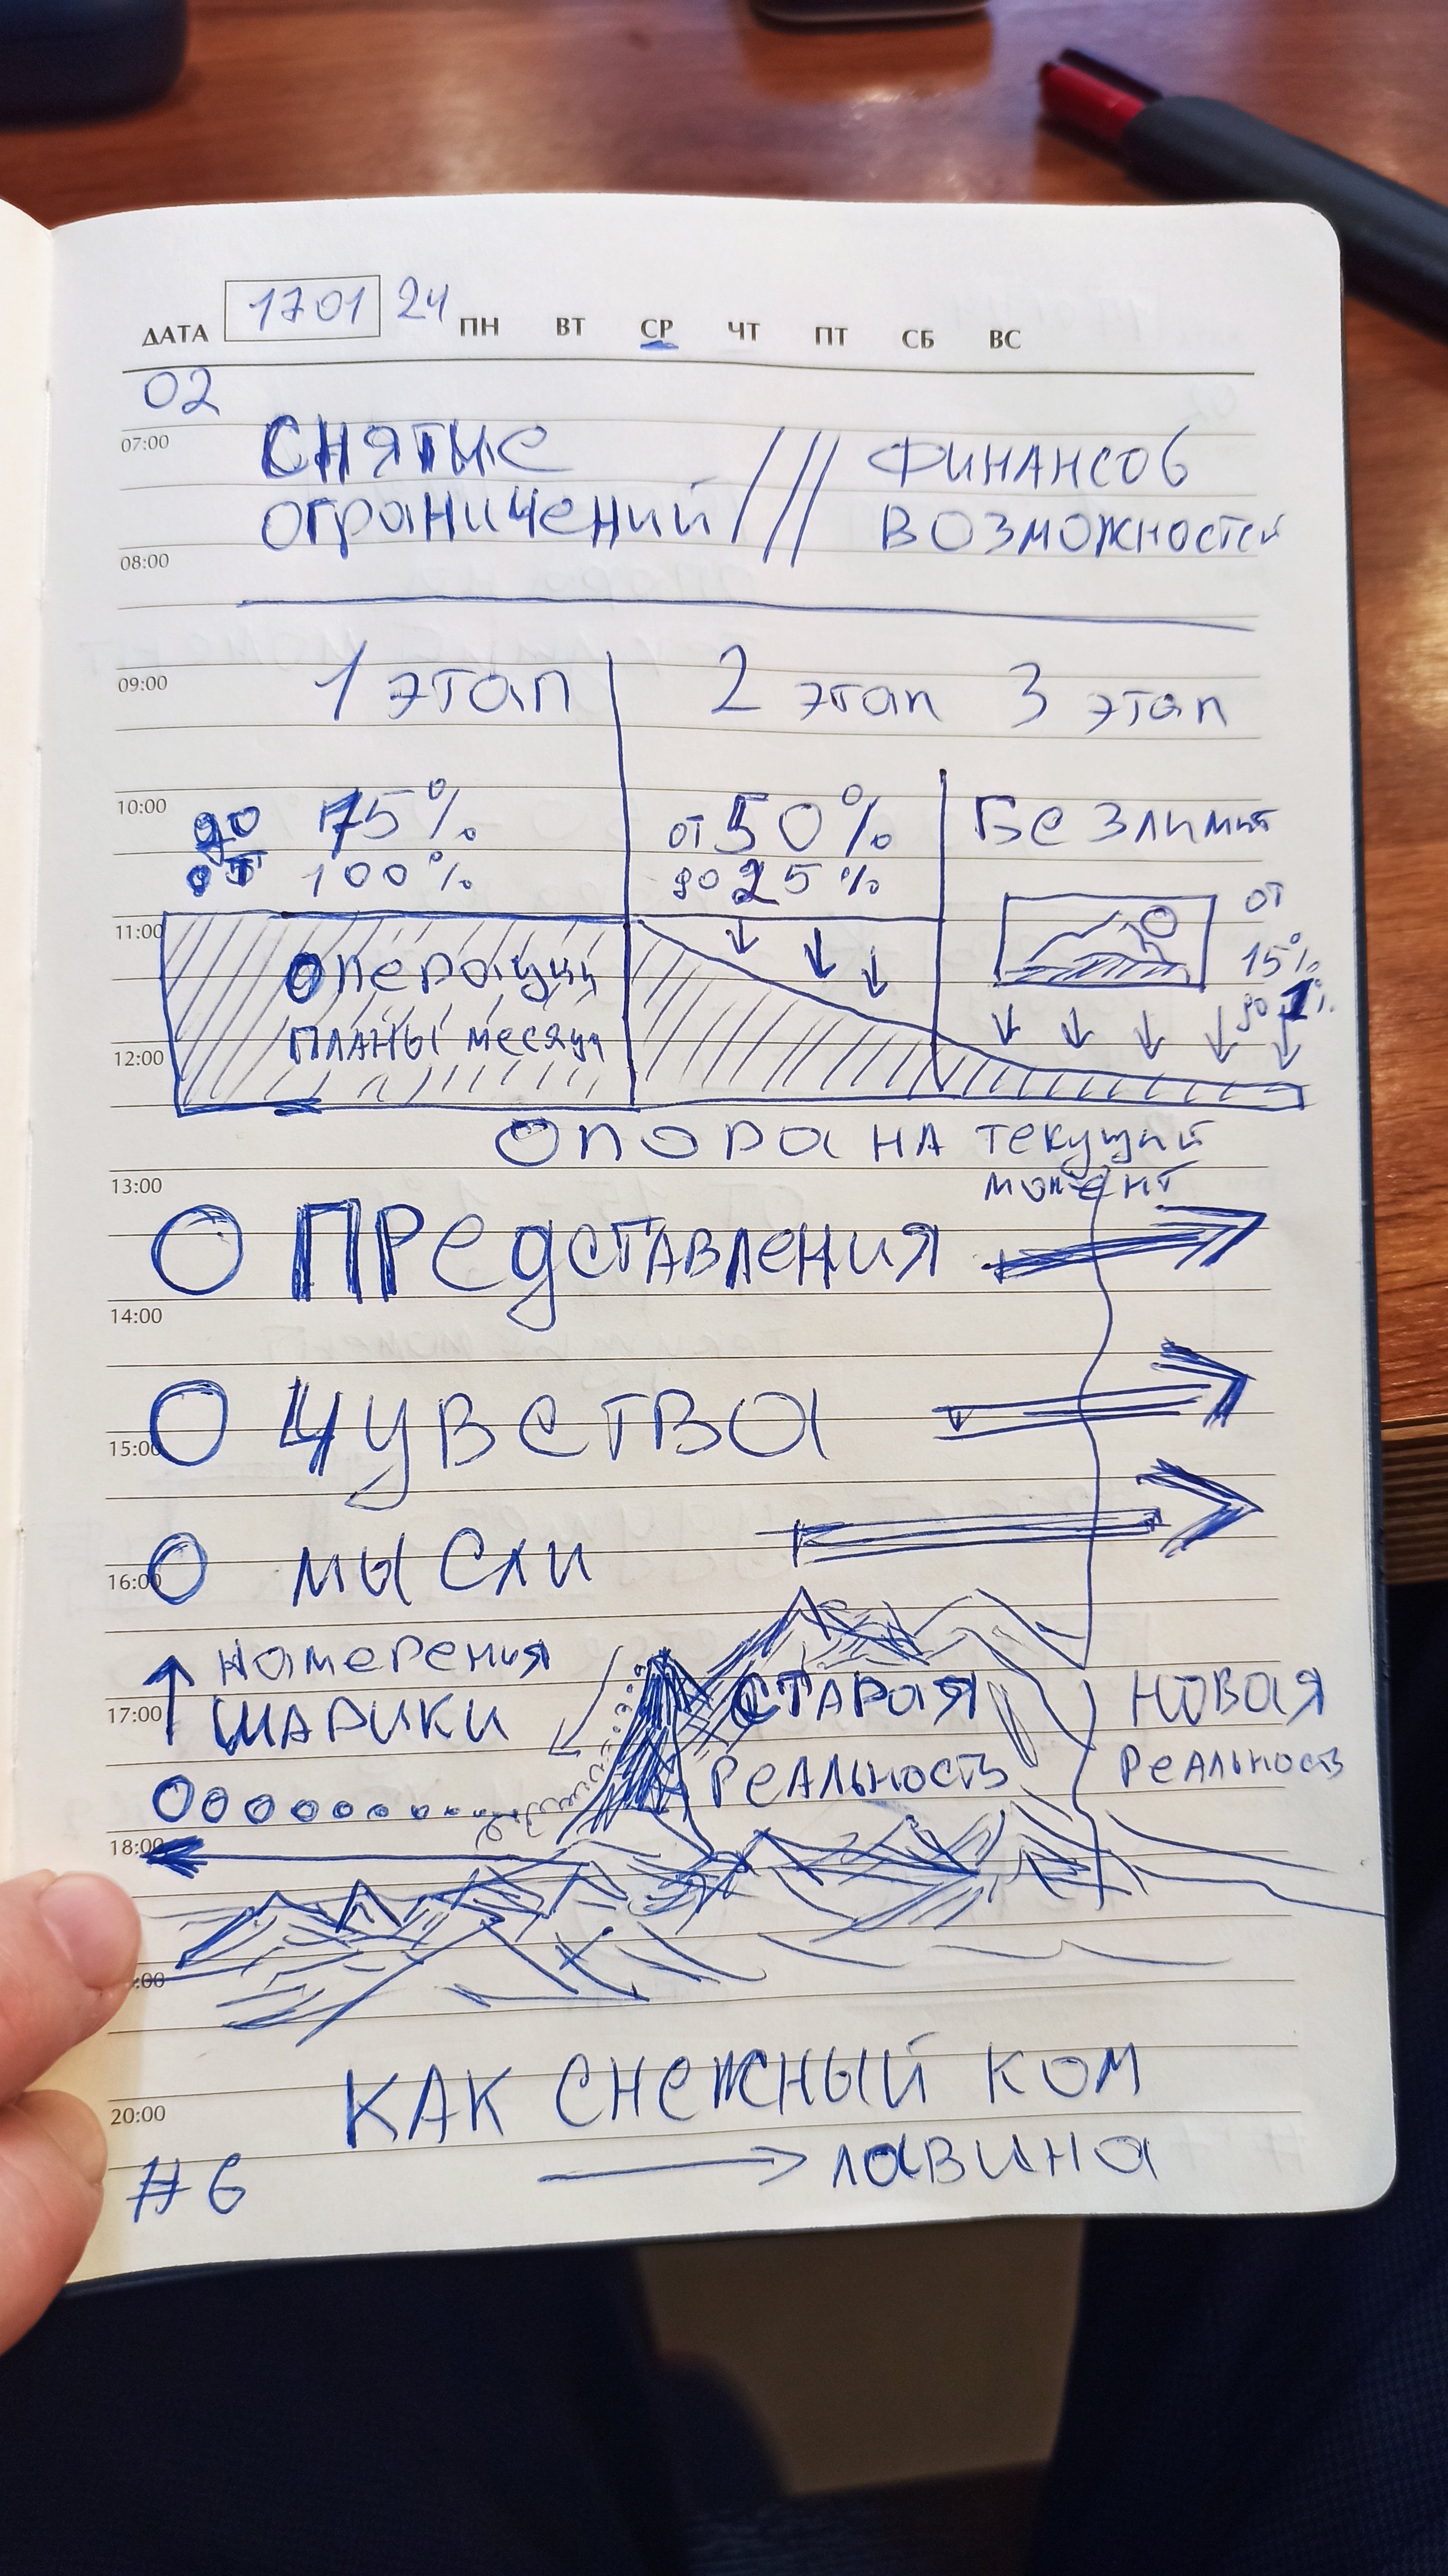 ДАТА 1701 24 ПН ВТ СР ЧТ ПТ СБ ВС
02
07:00
СНЯТИЕ /// ФИНАНСОВ
ограничений ВОЗМОЖНОСТЕЙ
08:00
09:00 1 этап 2 этап 3 этап
10:00 до 75% от 50% Безлимит
от 100% до 25%
11:00 Операции от 15%
планы месяца до 1%
12:00
Опора на текущий
момент
13:00
О Представления
14:00
О Чувства
15:00
О мысли
16:00
намерения
17:00 шарики Старая Новая
реальность реальность
18:00
:00
Как снежный ком
20:00
#6 → лавина